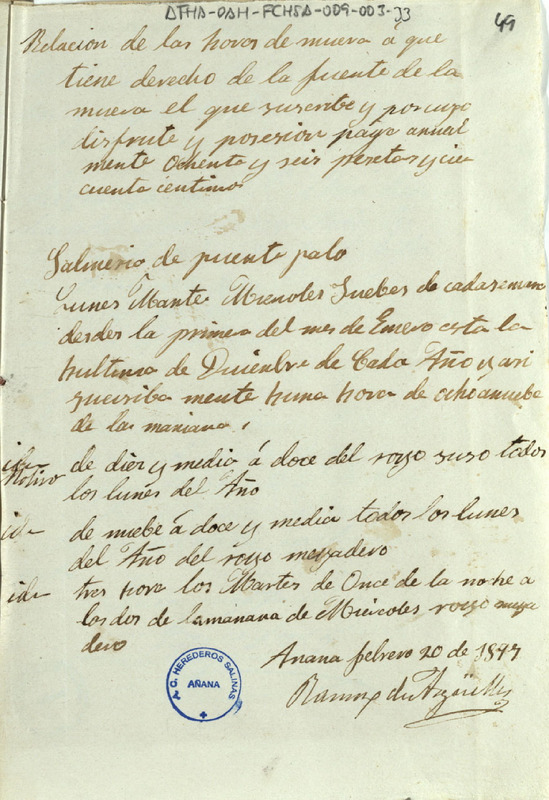 ATHA-DAH-FCHSA-009-003-33
49
Relacion de las horas de muera á que
tiene derecho de la fuente de la
muera el que suscribe y por cuyo
disfrute y posesion paga anual
mente ochenta y seis pesetas y cin
cuenta centimos
Salinerio de puente palo
Lunes Mantes Miercoles Juebes de cada seman
desdes la primera del mes de Enero asta la
hultima de Diciembre de Cada Año y asi
sucesiba mente huna hora de ocho á nuebe
de las maniana,
ide Motivo
de diez y media á doce del royo suso todos
los lunes del Año
ide
de nuebe á doce y media todos los lunes
del Año del royo meyadero
ide
tres hora los Martes de Once de la noche a
las dos de la mañana de Miercoles royo meya
dero
Añana febrero 20 de 1897
Ramon de
A.C. HEREDEROS SALINAS
AÑANA